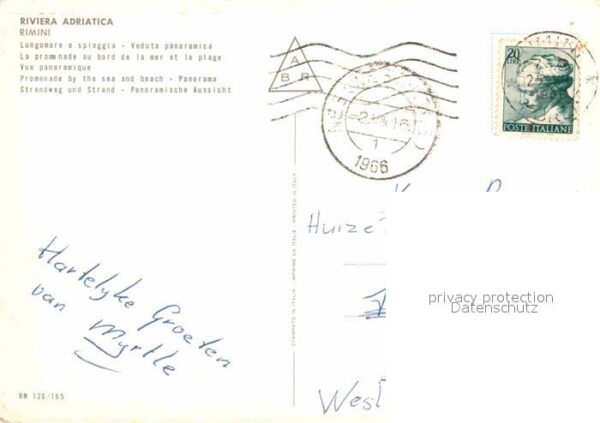 RIVIERA ADRIATICA
RIMINI
Lungomare e spiaggia - Veduta panoramica
La promenade au bord de la mer et la plage
Vue panoramique
Promenade by the sea and beach - Panorama
Strandweg und Strand - Panoramische Aussicht
A
B R
1
1966
20
LIRE
POSTE ITALIANE
Huize
privacy protection
Datenschutz
West
Hartelyke Groeten
van Myrtle
STAMPATO IN ITALIA - IMPRIME EN ITALIE - PRINTED IN ITALY
RN 126/165